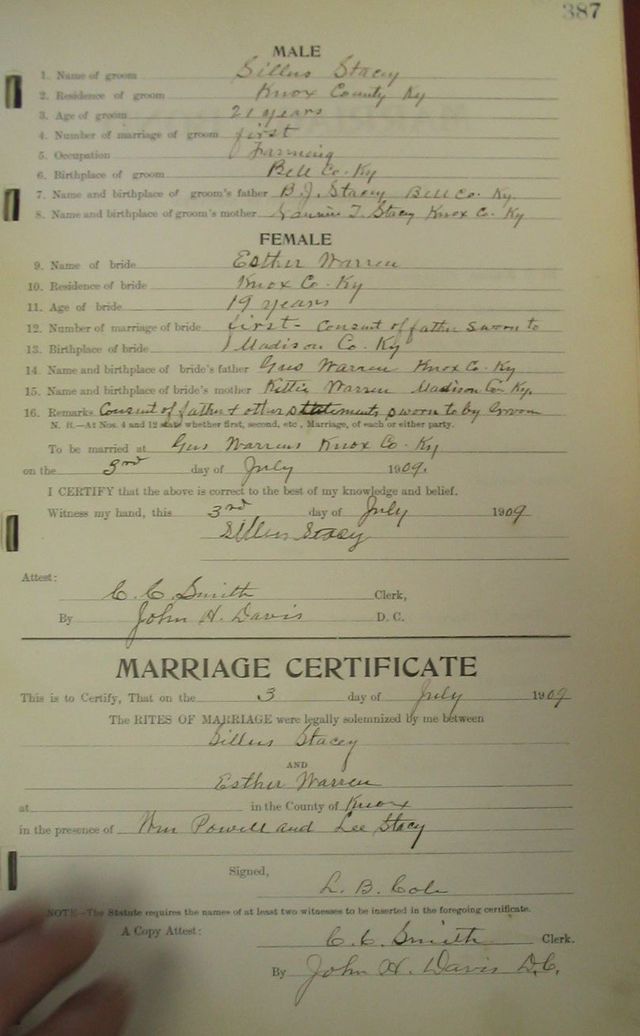 387
MALE
1. Name of groom Sillus Stacey
2. Residence of groom Knox County Ky
3. Age of groom 21 years
4. Number of marriage of groom first
5. Occupation Farming
6. Birthplace of groom Bell Co. Ky
7. Name and birthplace of groom's father B. J. Stacey Bell Co. Ky.
8. Name and birthplace of groom's mother T. Stacy Knox Co. Ky
FEMALE
9. Name of bride Esther Warren
10. Residence of bride Knox Co. Ky
11. Age of bride 19 years
12. Number of marriage of bride first - Consent of father sworn to
13. Birthplace of bride Madison Co. Ky
14. Name and birthplace of bride's father Gus Warren Knox Co. Ky
15. Name and birthplace of bride's mother Kittie Warren Madison Co. Ky.
16. Remarks Consent of father & other statements sworn to by Groom
N. B.—At Nos. 4 and 12 state whether first, second, etc., Marriage, of each or either party.
To be married at Gus Warrens Knox Co. Ky
on the 3rd day of July 1909.
I CERTIFY that the above is correct to the best of my knowledge and belief.
Witness my hand, this 3rd day of July 1909
Sillus Stacey
Attest:
C. C. Smith Clerk,
By John H. Davis D. C.
MARRIAGE CERTIFICATE
This is to Certify, That on the 3 day of July 1909
The RITES OF MARRIAGE were legally solemnized by me between
Sillus Stacey
AND
Esther Warren
at in the County of Knox
in the presence of Wm Powell and Lee Stacy
Signed,
L. B. Cole
NOTE—The Statute requires the names of at least two witnesses to be inserted in the foregoing certificate.
A Copy Attest:
C. C. Smith Clerk.
By John H. Davis D.C.